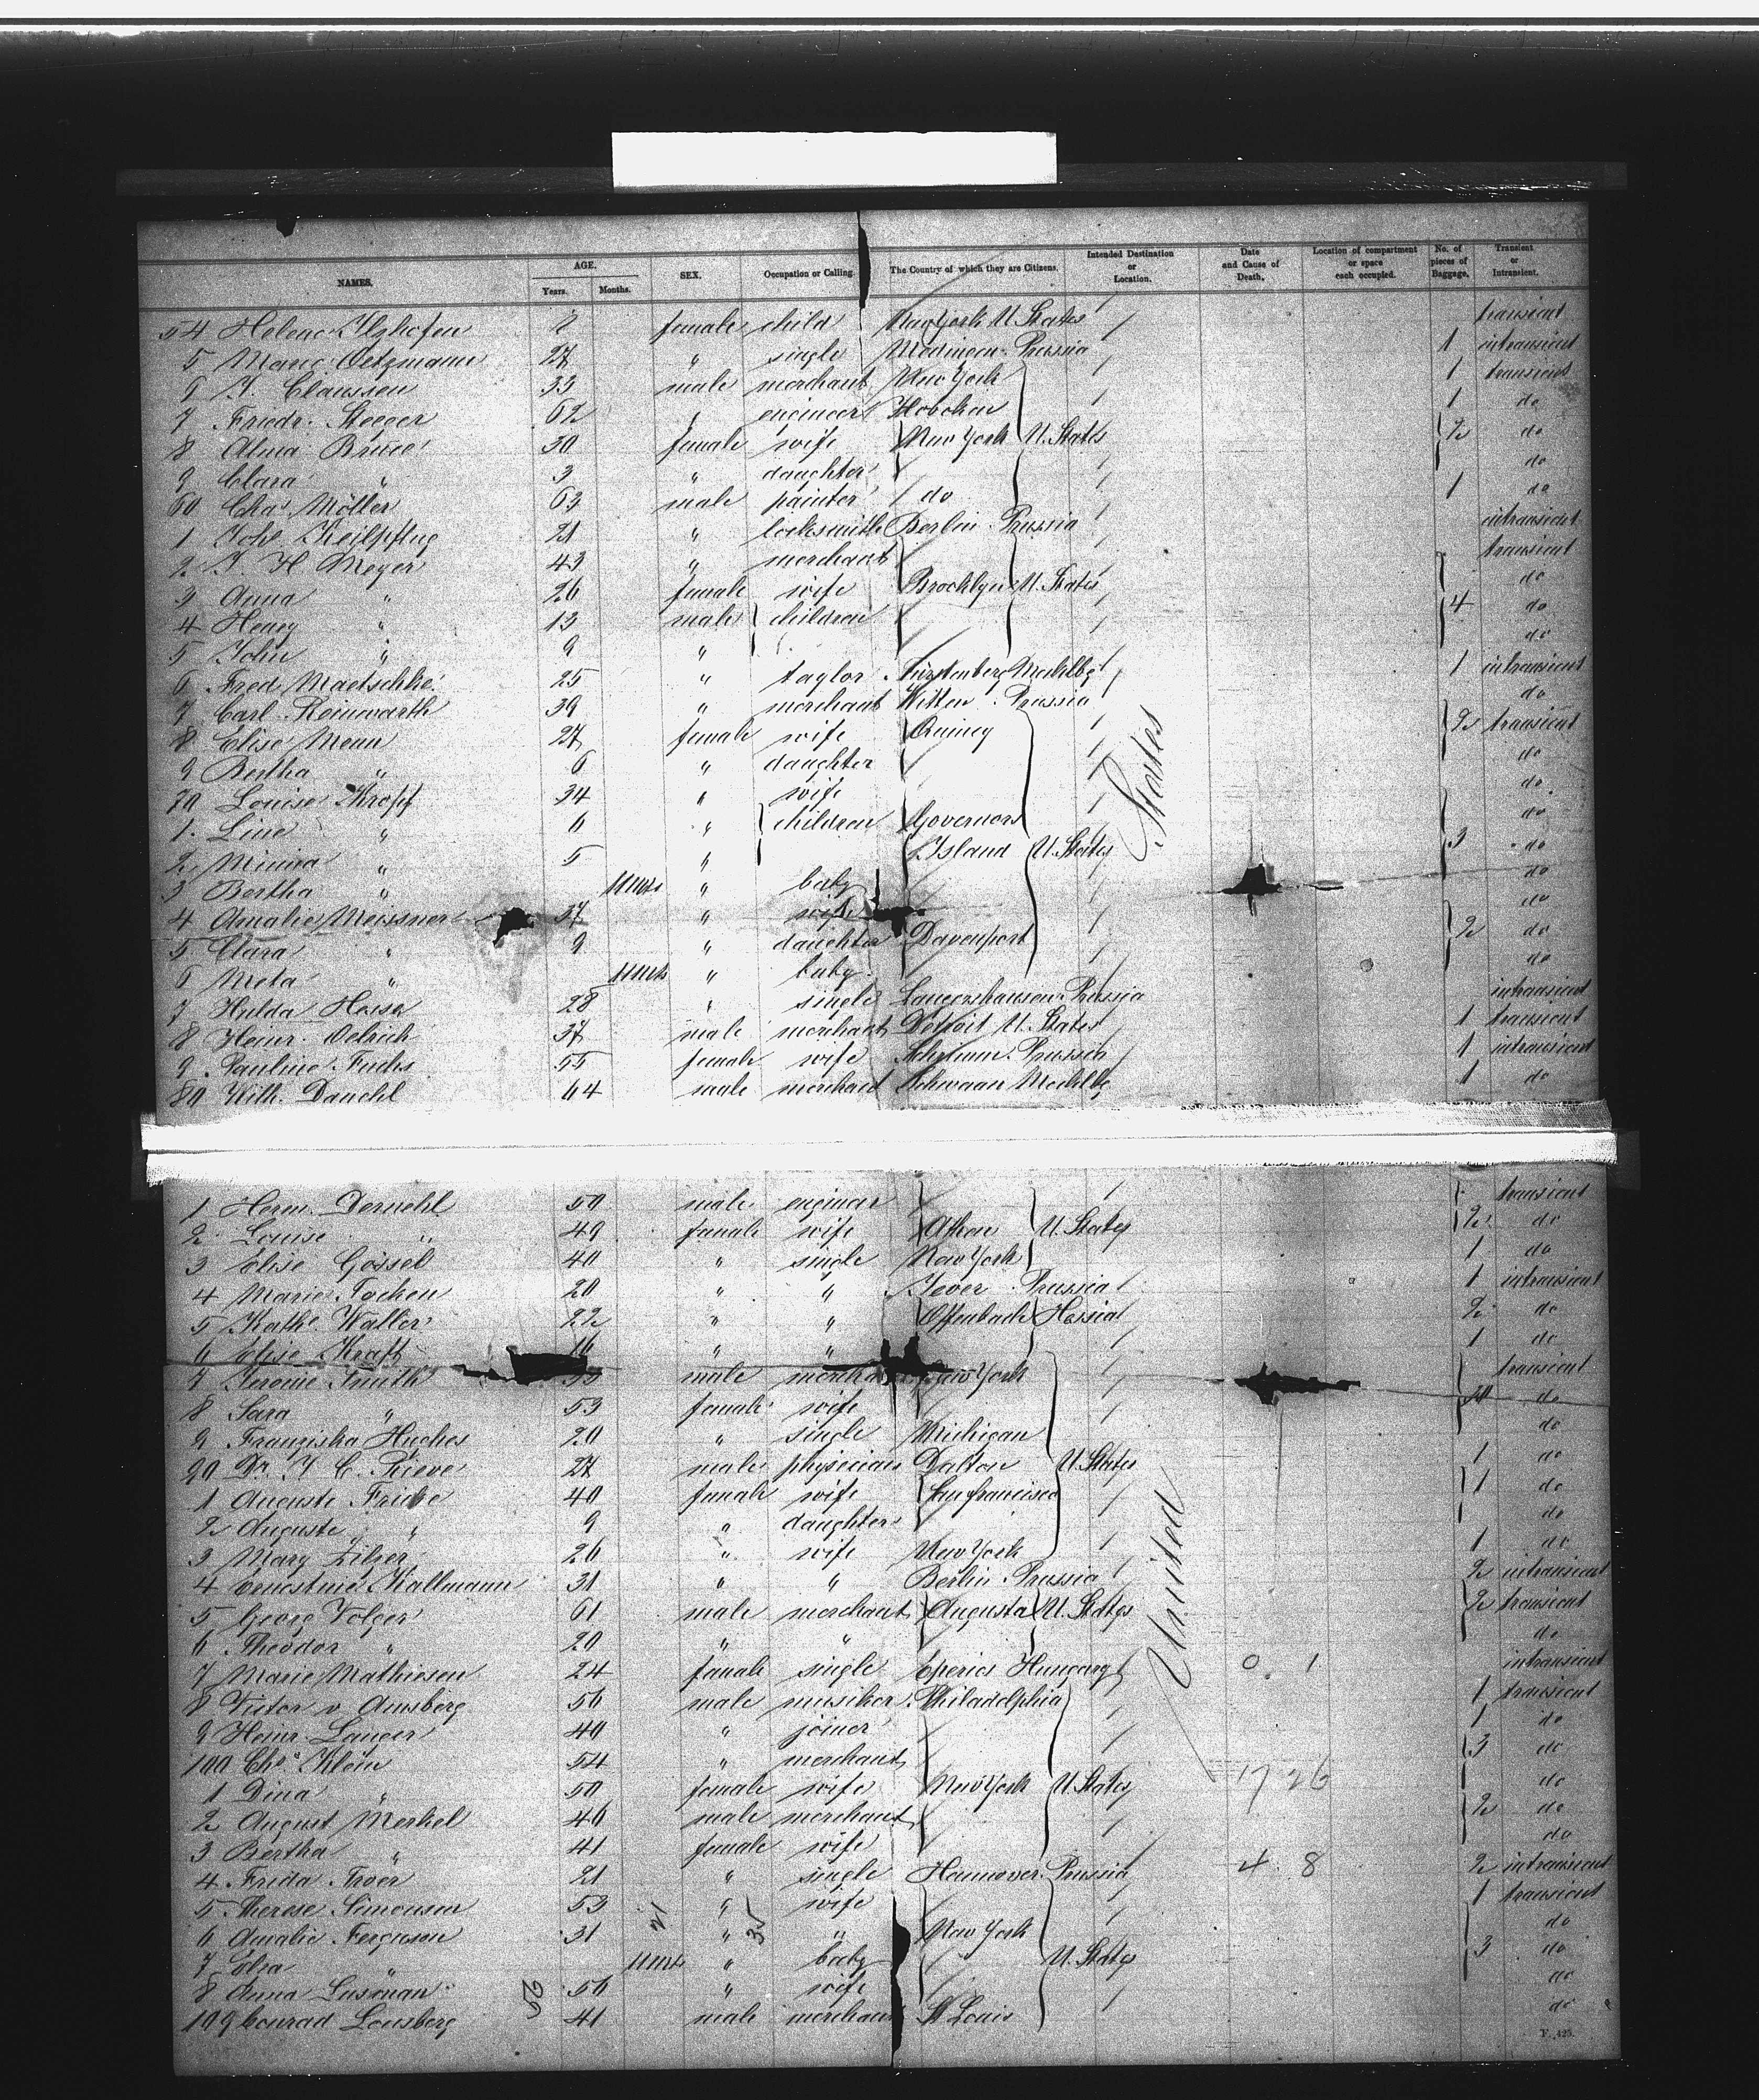 NAMES. AGE. Years. Months. SEX. Occupation or Calling. The Country of which they are Citizens. Intended Destination or Location. Date and Cause of Death. Location of compartment or space each occupied. No. of pieces of Baggage. Transient or Intransient.
54 Helene female child New York U. States transient
5 Marie Oetzmann 27 " single Medingen Prussia 1 intransient
6 J. Claussen 33 male merchant New York 1 transient
7 Friedr. Steeger 62 " engineer Hoboken 1 do
8 Alma Bruce 30 female wife New York U. States 2 do
9 Clara " 3 " daughter do
60 Chs. Möller 63 male painter do 1 do
1 Johs Keilpflug 21 " locksmith Berlin Prussia intransient
2 J. H Meyer 43 " merchant transient
3 Anna " 26 female wife Brooklyn U. States do
4 Henry " 13 male children 4 do
5 John " 9 " do
6 Fred Maetschke 25 " taylor Fürstenberg Mecklbg 1 intransient
7 Carl Reinwarth 39 " merchant Witten Prussia do
8 Elise Menn 27 female wife Quincy 2 transient
9 Bertha " 6 " daughter do
70 Louise Kropf 34 " wife do.
1. Line " 6 " children Governors do
2 Minna " 5 " Island U. States 3 do
3 Bertha " 11 mts " baby do
4 Amalie Meissner 37 " wife do
5 Clara " 9 " daughter Davenport 2 do
6 Meta " 11 mts " baby do
7 Hulda Hesse 28 " single Prussia intransient
8 Heinr. Oelrich 37 male merchant Detroit U. States 1 transient
9 Pauline Fuchs 55 female wife Prussia 1 intransient
80 Wilh. Dauehl 64 male merchant Schwaan Mecklbg 1 do
States
1 Herm. Dernehl 50 male engineer transient
2 Louise " 49 female wife U. States 2 do
3 Elise Gössel 40 " single New York 1 do
4 Marie Focken 20 " " Jever Prussia 1 intransient
5 Kathe Waller 22 " " Offenbach Hessia 2 do
6 Elise Kraft 16 " " 1 do
7 Jerome Smith male New York transient
8 Sara " 53 female wife 10 do
9 Franziska Hughes 20 " single Michigan do
90 Dr. J. C. Reeve 27 male physician Dalton U. States 1 do
1 Auguste Fricke 40 female wife San francisco 1 do
2 Auguste " 9 " daughter do
3 Mary Zilzer 26 " wife New York 1 do
4 Ernestine Kallmann 31 " " Berlin Prussia 2 intransient
5 Georg Volger 61 male merchant Augusta U. States 2 transient
6 Theodor " 20 " " do
7 Marie Mathiesen 24 female single Eperies Hungary 0. 1 intransient
8 Victor v Amsberg 56 male musiker Philadelphia 1 transient
9 Heinr. Langer 40 " joiner 1 do
100 Chs. Klein 54 " merchant 3 do
1 Dina " 50 female wife New York U. States 17 26 do
2 August Merkel 46 male merchant 2 do
3 Bertha " 41 female wife do
4 Frida Troer 21 " single Hannover Prussia 4. 8 2 intransient
5 Therese Simonson 53 " wife 1 transient
6 Amalie Ferguson 31 " " New York do
7 " 11 mts " baby U. States 3 do
8 Anna Lusman 56 " wife do
109 Conrad Lousberg 41 male merchant St Louis do
United
21
35
25
F. 425.